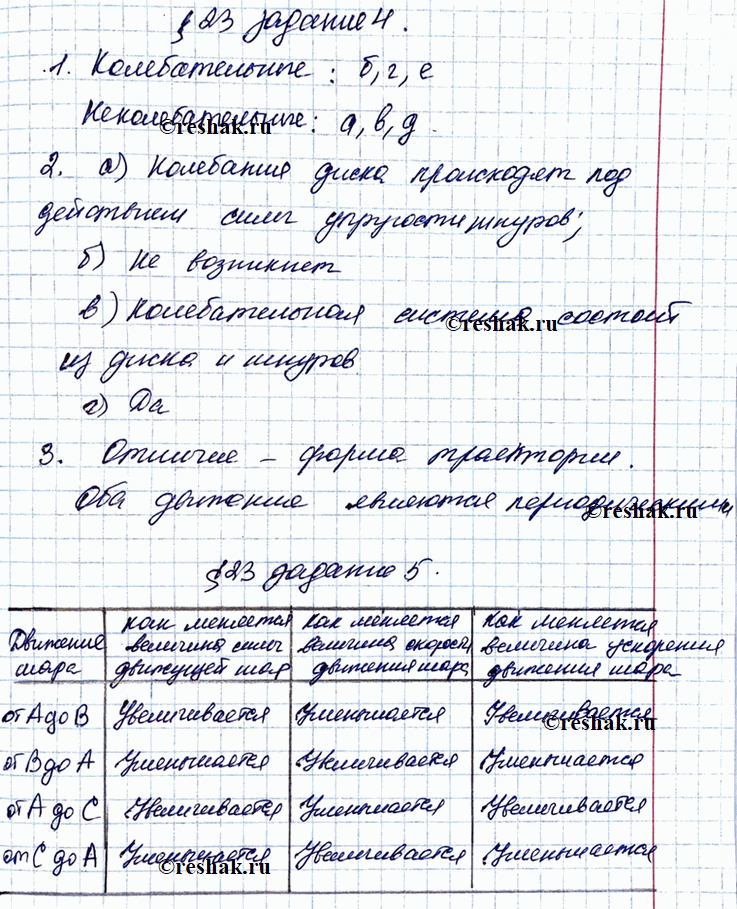 § 23 задание 4.
1. Колебательные: б, г, е
Неколебательные: а, в, д.
©reshak.ru
2. а) Колебания диска происходят под
действием силы упругости шнуров;
б) Не возникнет
в) Колебательная система состоит
©reshak.ru
из диска и шнуров
г) Да
3. Отличие – форма траектории.
Оба движение являются периодическими
©reshak.ru
§ 23 задание 5.
Движение шара | Как меняется величина силы движущей шар | Как меняется величина скорости движения шара | Как меняется величина ускорения движения шара
от А до В | Увеличивается | Уменьшается | Увеличивается
©reshak.ru
от В до А | Уменьшается | Увеличивается | Уменьшается
от А до С | Увеличивается | Уменьшается | Увеличивается
от С до А | Уменьшается | Увеличивается | Уменьшается
©reshak.ru